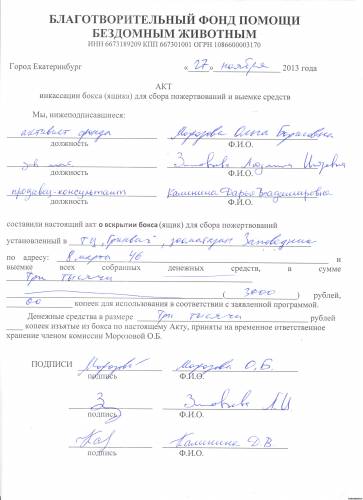 БЛАГОТВОРИТЕЛЬНЫЙ ФОНД ПОМОЩИ
БЕЗДОМНЫМ ЖИВОТНЫМ
ИНН 6673189209 КПП 667301001 ОГРН 1086600003170
Город Екатеринбург « 27 » ноября 2013 года
АКТ
инкассации бокса (ящика) для сбора пожертвований и выемке средств
Мы, нижеподписавшиеся:
активист фонда Морозова Ольга Борисовна
должность Ф.И.О.
зав маг Людмила
должность Ф.И.О.
продавец-консультант Калинина Дарья Владимировна
должность Ф.И.О.
составили настоящий акт о вскрытии бокса (ящик) для сбора пожертвований
установленный в ТЦ, зоомагазин Заповедник
по адресу: 8 марта 46 и
выемке всех собранных денежных средств, в сумме
Три тысячи
( 3000 ) рублей,
00 копеек для использования в соответствии с заявленной программой.
Денежные средства в размере Три тысячи рублей
копеек изъятые из бокса по настоящему Акту, приняты на временное ответственное
хранение членом комиссии Морозовой О.Б.
ПОДПИСИ Морозова О.Б.
подпись Ф.И.О.
подпись Ф.И.О.
Калинина Д В
подпись Ф.И.О.